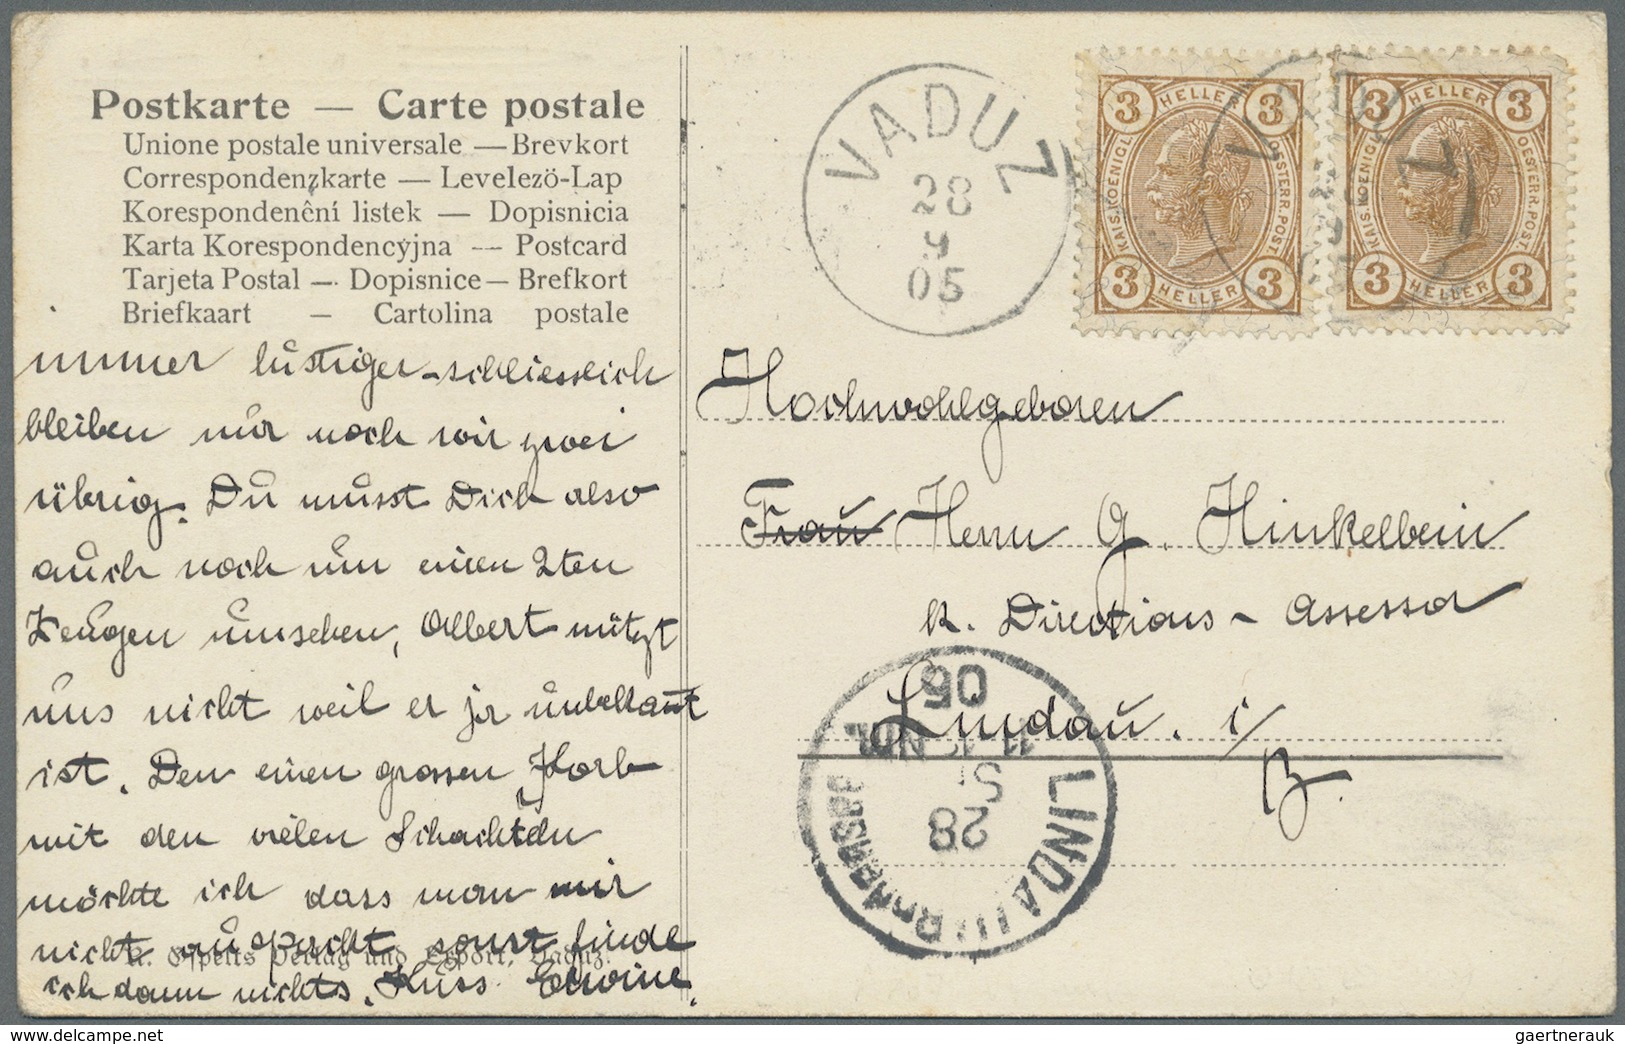 Postkarte — Carte postale
Unione postale universale — Brevkort
Correspondenzkarte — Levelezö-Lap
Korespondenêní listek — Dopisnicia
Karta Korespondencyjna — Postcard
Tarjeta Postal — Dopisnice — Brefkort
Briefkaart — Cartolina postale
immer lustiger - schliesslich
bleiben nur noch wir zwei
übrig. Du musst Dich also
auch noch um einen 2ten
Zeugen umsehen, Albert nützt
uns nicht weil er ja unbekannt
ist. Den einen grossen Korb
mit den vielen Schachteln
möchte ich dass man mir
nicht auspackt sonst finde
ich dann nichts. Kuss Erwine.
Verlag und Export, Vaduz.
VADUZ
28
9
05
3 HELLER 3
KAIS. KOENIGL. OESTERR. POST.
3 HELLER 3
3 HELLER 3
KAIS. KOENIGL. OESTERR. POST.
3 HELLER 3
VADUZ
Hochwohlgeboren
Frau Herrn G. Hinkelbein
k. Directions - Assessor
Lindau. i/
B.
LINDAU
28
05
www.delcampe.net
gaertnerauk